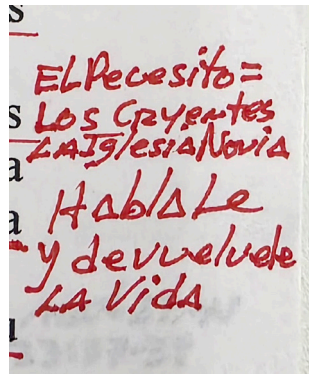 ELPecesito=
Los Creyentes
LAIglesiaNovia
HablaLe
y devuelvele
LA Vida